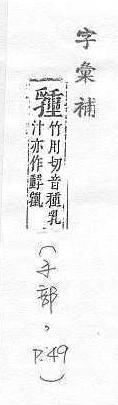 字彙補
竹用切音種乳
汁亦作
(子部，P.49)